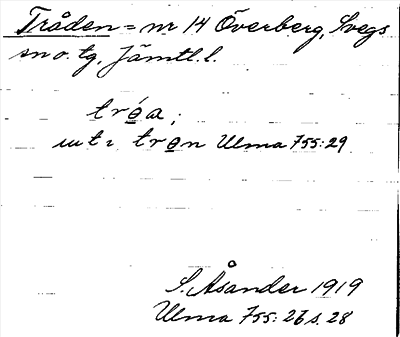 Tråden = nr 14 Överberg, Svegs
sn o. tg, Jämtl. l.
tróa;
ut: tron Ulma 755:29
S. Åsander 1919
Ulma 755:26 s. 28